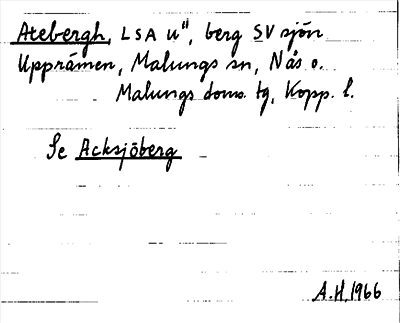 Atebergh, LSA U", berg SV sjön
Upprämen, Malungs sn, Nås o.
Malungs doms. tg, Kopp. l.
Se Acksjöberg
A.H. 1966